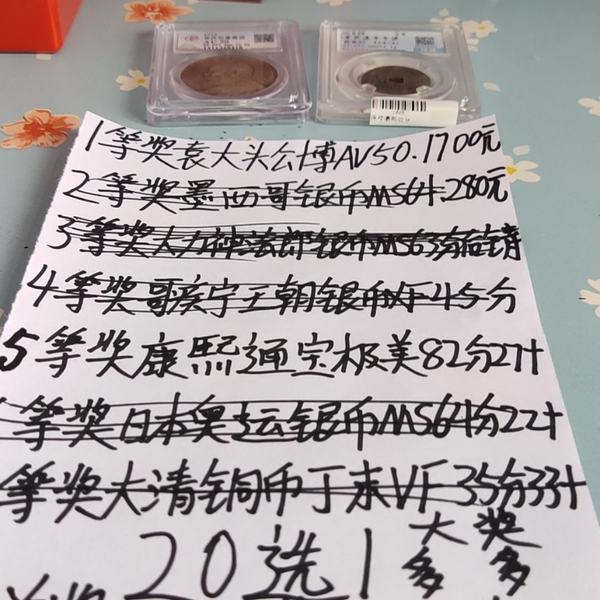 1等奖袁大头公博AV50.1700元
2等奖墨西哥银币MS64.280元
3等奖大力神法郎银币MS63
4等奖哥疾宁王朝银币XF45分
5等奖康熙通宝极美82分27计
等奖日本奥运银币MS64分22计
等奖大清铜币丁未VF35分33计
20选1
大奖
多多